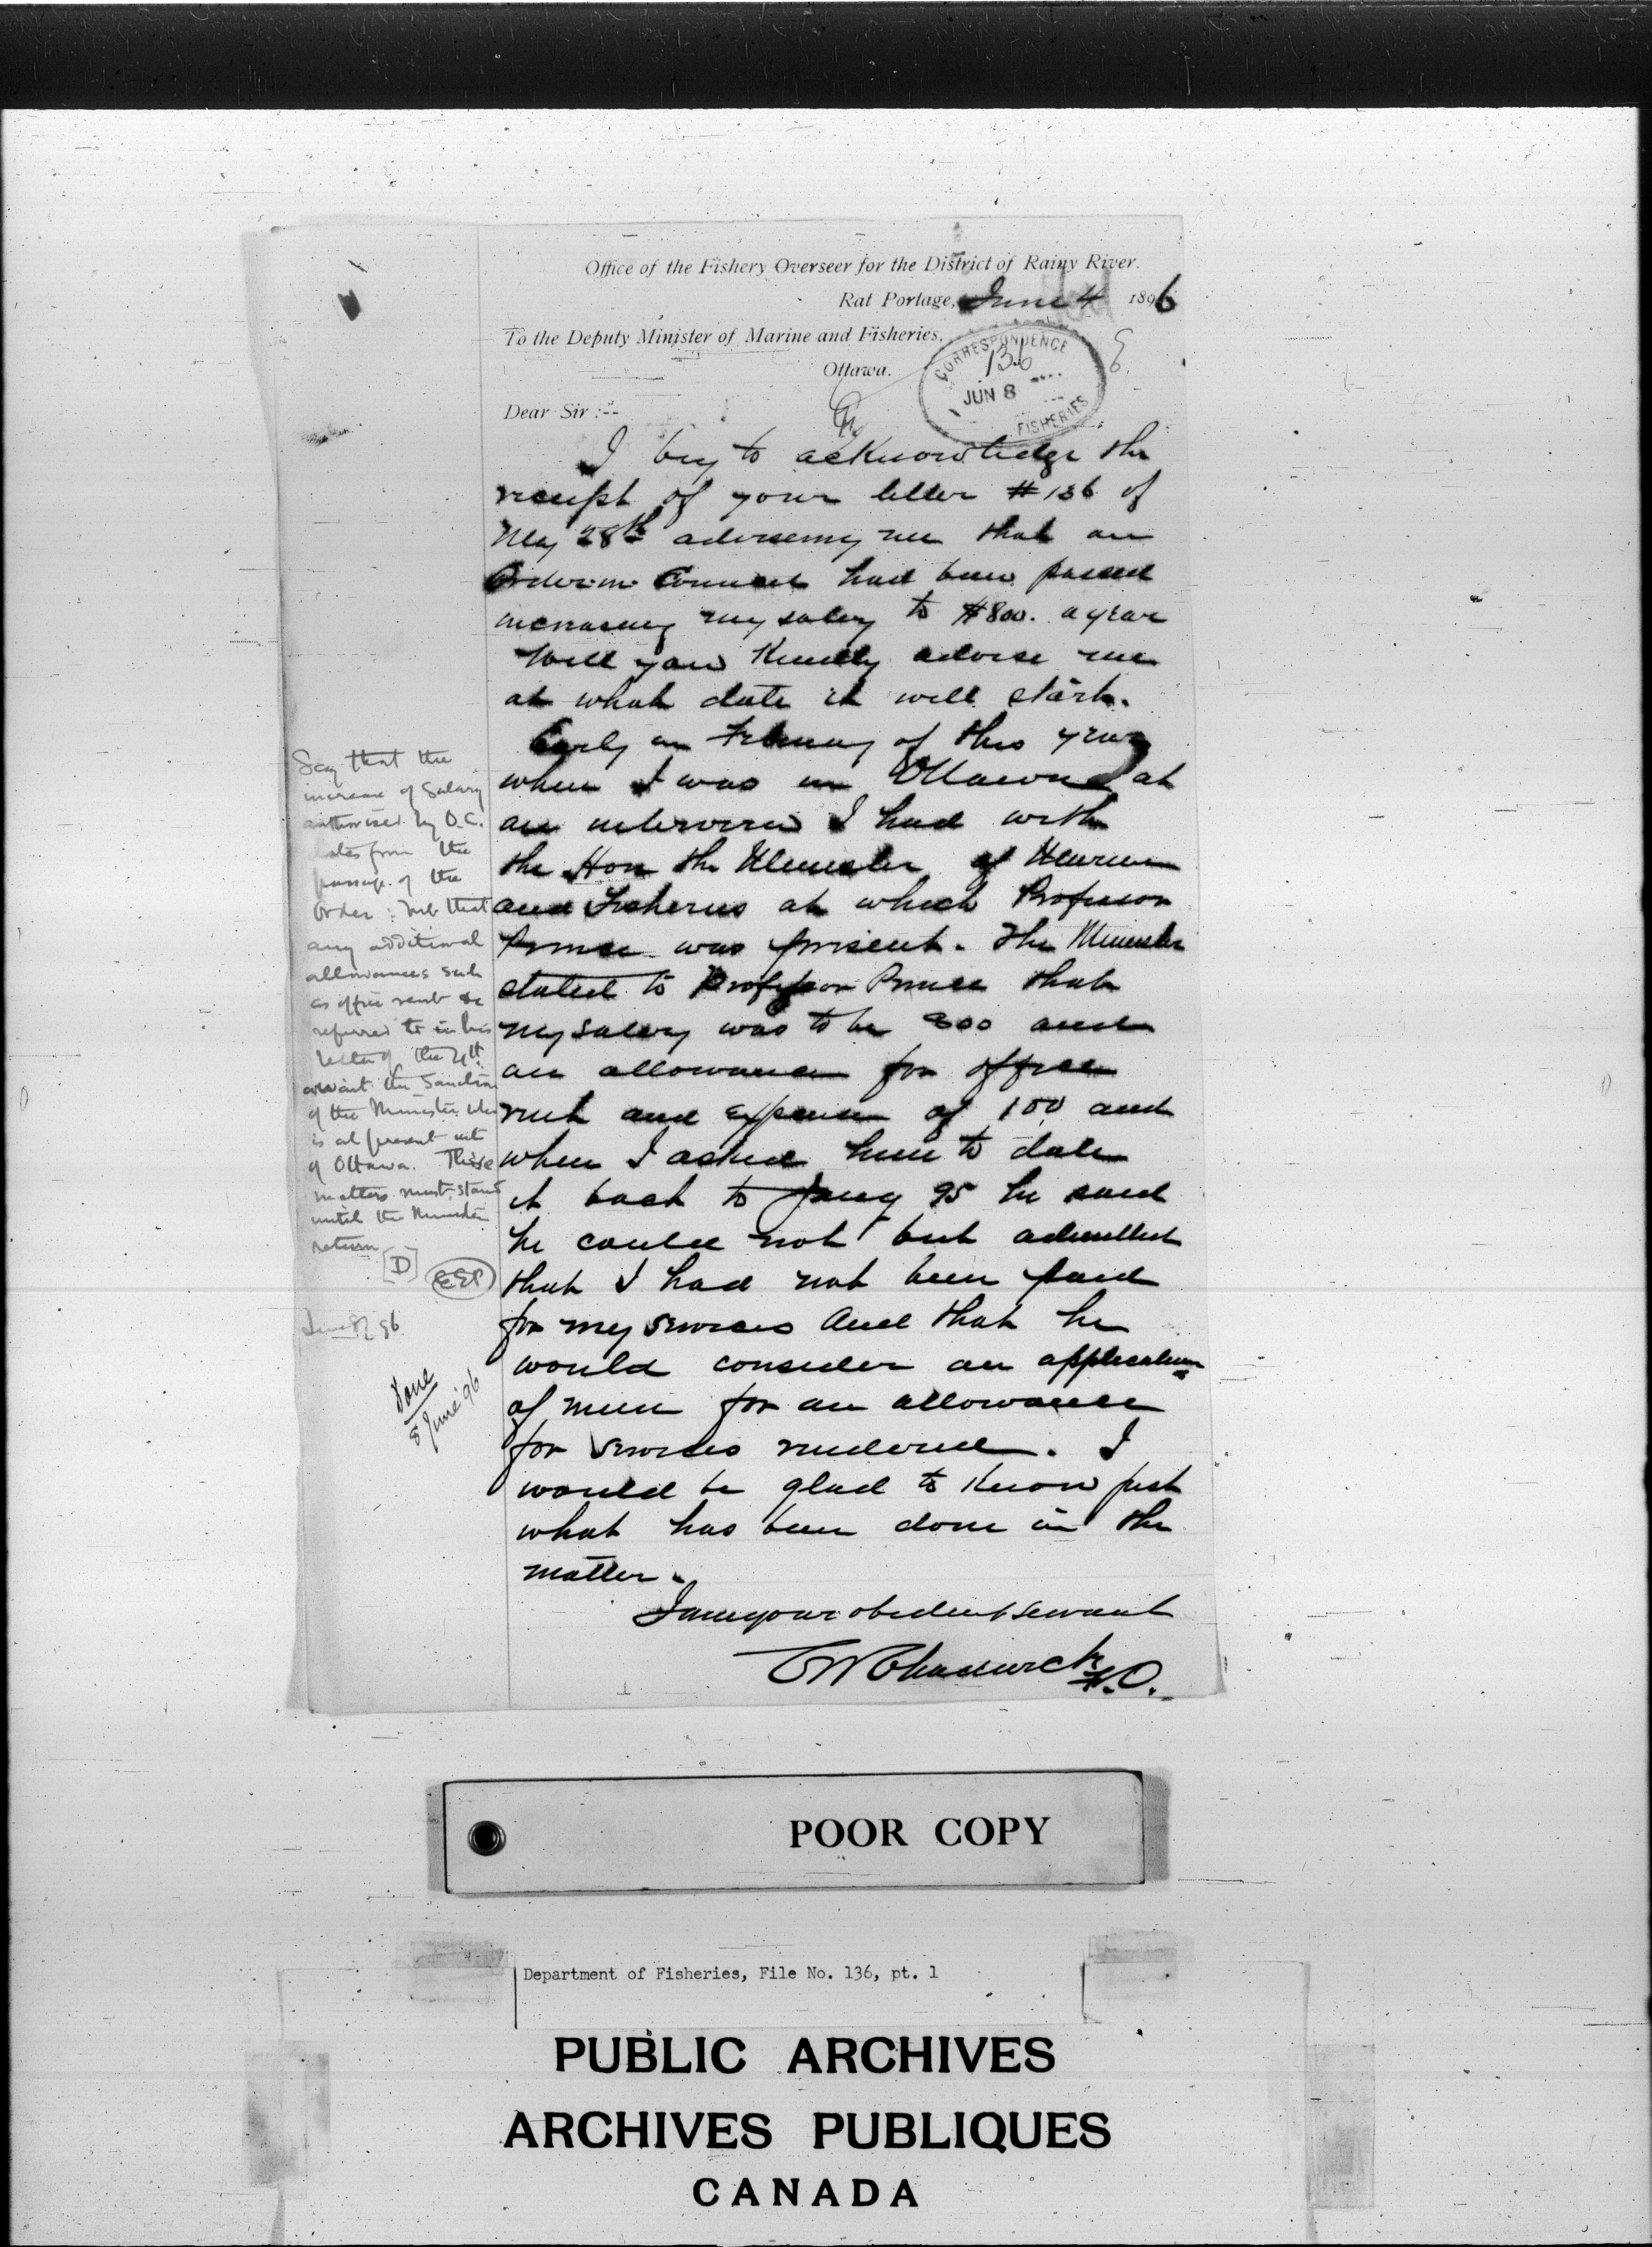 Office of the Fishery Overseer for the District of Rainy River.
Rat Portage, June 4 1896
To the Deputy Minister of Marine and Fisheries,
Ottawa.
CORRESPONDENCE
136
JUN 8
FISHERIES
Dear Sir :--
I beg to acknowledge the
receipt of your letter #136 of
May 28th advising me that an
Order in Council had been passed
increasing my salary to $800. a year
Will you kindly advise me
at what date it will start.
Early in February of this year
when I was in Ottawa at
an interview I had with
the Hon the Minister of Marine
and Fisheries at which Professor
Prince was present. The Minister
stated to Professor Prince that
my salary was to be 800 and
an allowance for office
rent and expense of 100 and
when I asked him to date
it back to Jany 95 he said
he could not but admitted
that I had not been paid
for my services and that he
would consider an application
of mine for an allowance
for services rendered. I
would be glad to know just
what has been done in the
matter.
I am your obedient servant
CW Chadwick
F.O.
Say that the
increase of Salary
authorised by O.C.
dates from the
passage of the
Order : that
any additional
allowances such
as office rent &c
referred to in his
letter of the 4th
await the Sanction
of the Minister who
is at present out
of Ottawa. These
matters must stand
until the Minister
return
[D]
EEP
June 8/96
Done
8 June '96
POOR COPY
Department of Fisheries, File No. 136, pt. 1
PUBLIC ARCHIVES
ARCHIVES PUBLIQUES
CANADA